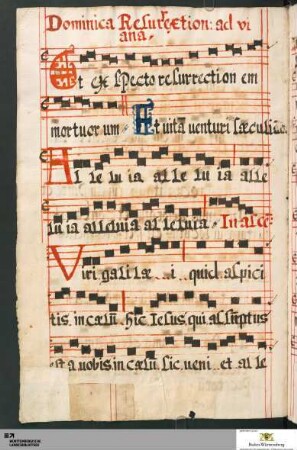 Dominica Resurrection: ad vi
ana.
Et expecto resurrection em
mortuor um Et vitã venturi sæculi
Al le lu ia al le lu ia al le
lu ia allelu ia al le lu ia. In asce
Viri galilæ i quid aspici
tis in cælũ hic Iesus qui assũptus
est a vobis in cælũ sic veni et al le
Baden-Württemberg